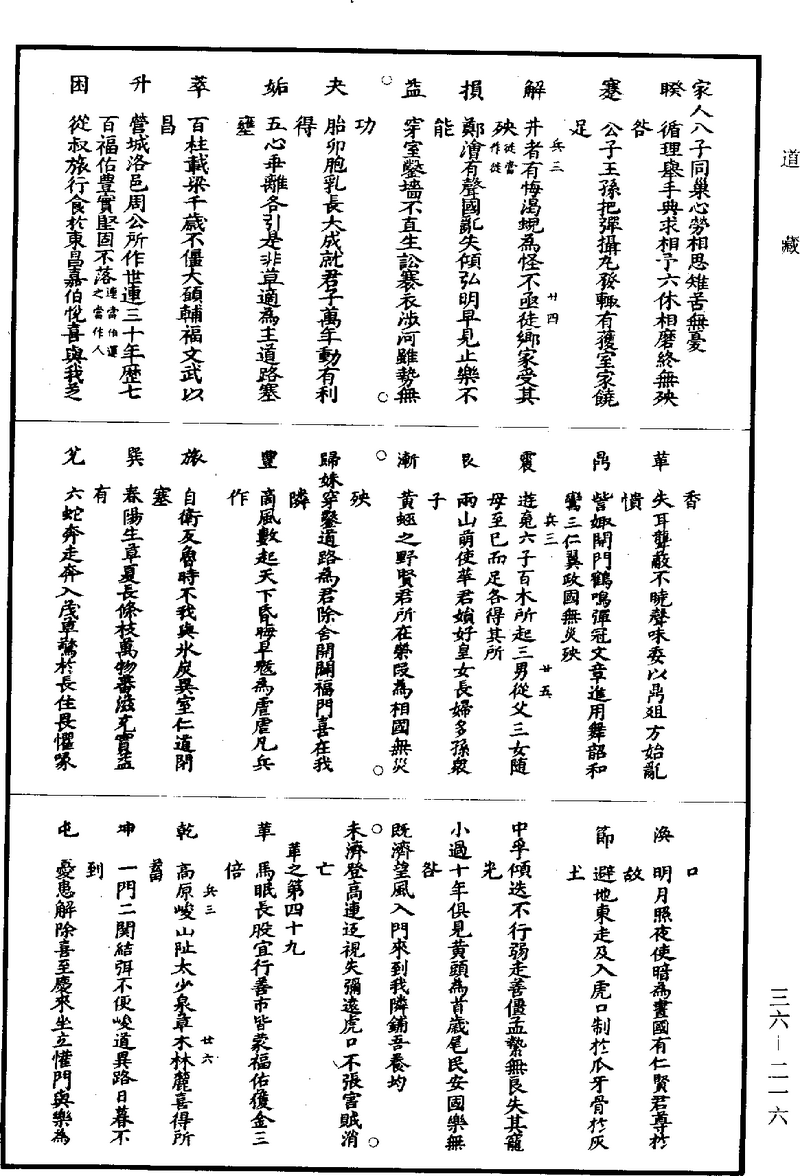 道藏
家人八子同巢心勞相思雖苦無憂
睽 循理舉手典求相予六休相磨終無殃
咎
蹇 公子王孫把彈攝丸發輒有獲室家饒
足
兵三 廿四
解 井者有悔渴蜺為怪不亟徒鄉家受其
殃徒當作徙
損 鄭澮有聲國亂失傾弘明早見止樂不
能
益 穿室鑿墻不直生訟褰衣涉河雖勢無
功
夬 胎卵胞乳長大成就君子萬年動有利
得
姤 五心乖離各引是非草適為王道路塞
壅
萃 百柱載梁千歲不僵大碩輔福文武以
昌
升 營城洛邑周公所作世連三十年歷七
百福佑豐實堅固不落連當伯運之當作人
困 從叔旅行食於東昌嘉伯悅喜與我芝
香
革 失耳聾蔽不曉聲味委以鼎俎方始亂
憒
鼎 訾娵開門鶴鳴彈冠文章進用舞韶和
鸞三仁翼政國無災殃
兵三 廿五
震 遊竟六子百木所起三男從父三女隨
母至已而足各得其所
艮 兩山萌使華君媍好皇女長婦多孫衆
子
漸 黃蛇之野賢君所在榮段為相國無災
殃
歸妹穿鑿道路為君除舍開闢福門喜在我
隣
豐 高風數起天下昏晦早魃為虐虐凡兵
作
旅 自衛反魯時不我與氷炭異室仁道閉
塞
巽 春陽生草夏長條枝萬物蕃滋充實益
有
兌 六蛇奔走奔入茂草驚於長住畏懼啄
口
渙 明月照夜使暗為晝國有仁賢君尊於
故
節 避地東走反入虎口制於爪牙骨於灰
土
中孚傾迭不行弱走善僵孟縶無良失其寵
光
小過十年俱見黃頭為首歲尾民安國樂無
咎
既濟望風入門來到我隣鋪吾養均
未濟登高連迓視失彌遠虎口不張害賊消
亡
革之第四十九
革 馬眠長股宜行善市皆蒙福佑獲金三
倍
兵三 廿六
乾 高原峻山陸太少泉草木林麓喜得所
蓄
坤 一門二關結弭不便峻道異路日暮不
到
屯 憂患解除喜至慶來坐立懽門與樂為
三六—二一六